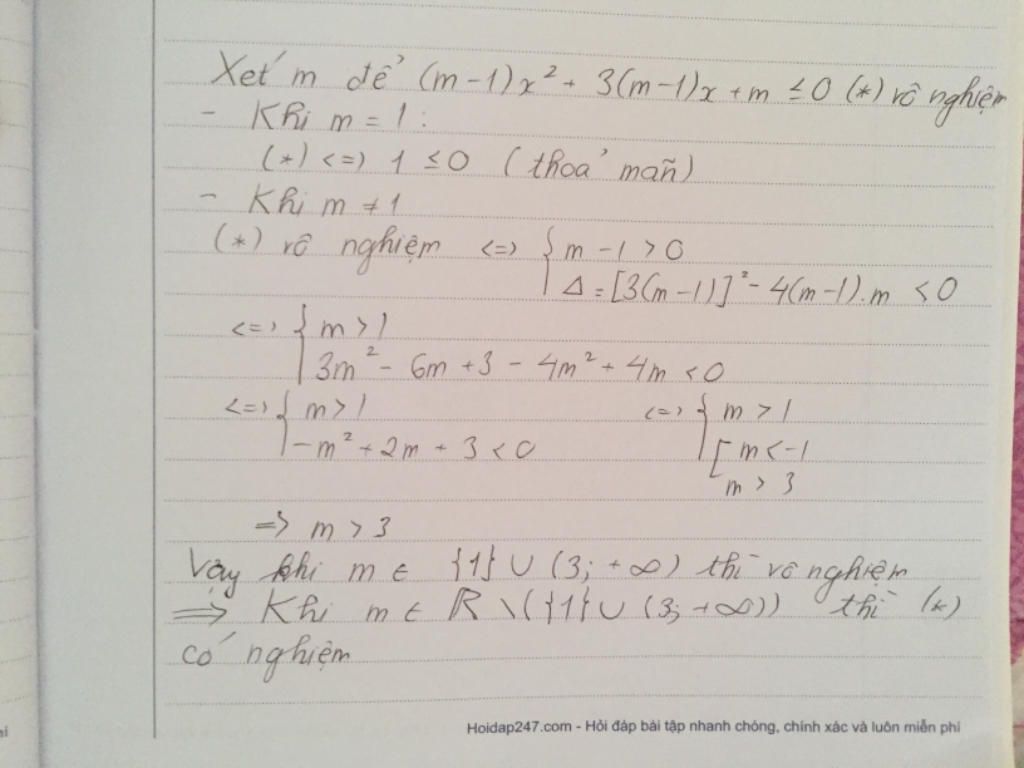 Xét m để (m-1)x² + 3(m-1)x + m ≤ 0 (*) vô nghiệm
- Khi m = 1:
(*) <=> 1 ≤ 0 (thoả mãn)
- Khi m ≠ 1
(*) vô nghiệm <=> { m - 1 > 0
Δ = [3(m-1)]² - 4(m-1).m < 0
<=> { m > 1
3m² - 6m + 3 - 4m² + 4m < 0
<=> { m > 1 <=> { m > 1
-m² + 2m + 3 < 0 [ m < -1
m > 3
=> m > 3
Vậy khi m ∈ {1} ∪ (3; +∞) thì vô nghiệm
=> Khi m ∈ ℝ \ ({1} ∪ (3; +∞)) thì (*)
có nghiệm
Hoidap247.com - Hỏi đáp bài tập nhanh chóng, chính xác và luôn miễn phí